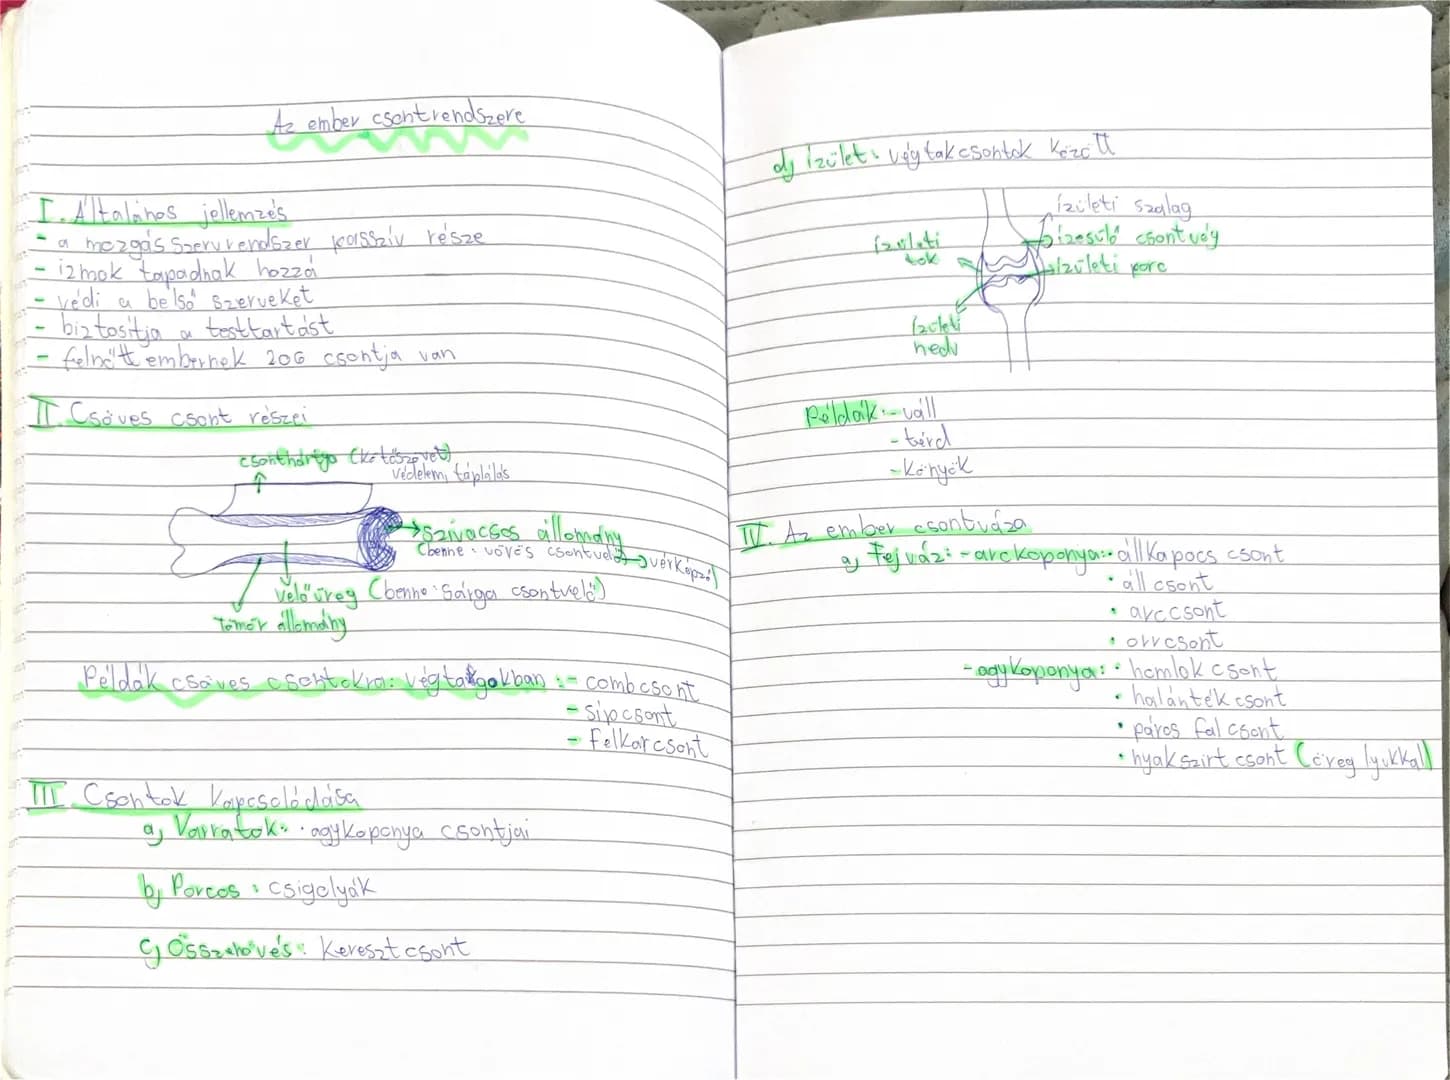 Az ember csontrendszere
I. Általános jellemzés
- a mozgás szervrendszer passzív része
- izmok tapadnak hozzá
- védi a belső szerveket
- biztosítja a testtartást
- felnőtt embernek 206 csontja van
II. Csöves csont részei
csonthártya (kötőszövet)
védelem, táplálás
szivacsos állomány
(benne: vörös csontvelő → vérképző)
velőüreg (benne: sárga csontvelő)
tömör állomány
Példák csöves csontokra: végtagokban: - combcsont
- sípcsont
- felkarcsont
III. Csontok kapcsolódása
a, Varratok: · agykoponya csontjai
b, Porcos: csigolyák
c, Összenövés: keresztcsont
d, ízület: végtakcsontok között
ízületi szalag
ízesülő csontvég
ízületi porc
ízületi
tok
ízületi
nedv
Példák: - váll
- térd
- könyök
IV. Az ember csontváza
a, Fejváz: - arckoponya: · állkapocs csont
· áll csont
· arccsont
· orrcsont
- agykoponya: · homlok csont
· halánték csont
· páros fal csont
· nyakszirt csont (öreg lyukkal)